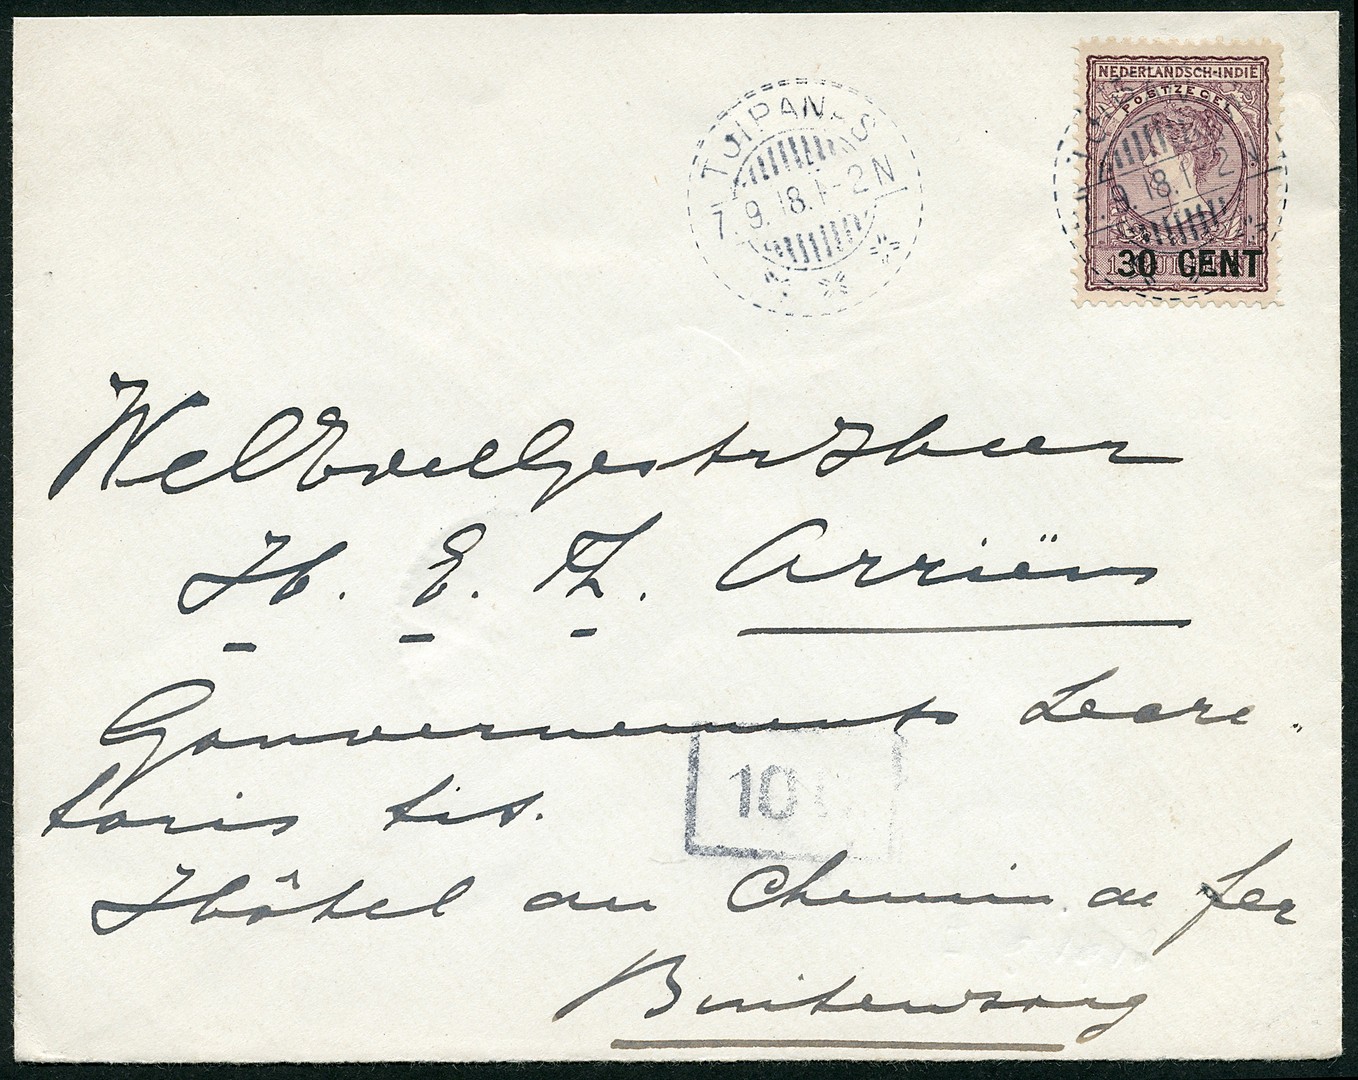 NEDERLANDSCH-INDIE
POSTZEGEL
30 CENT
TJIPANAS
7.9.18.1-2N
9.18.1 2
WelEdelGestr Heer
H. E. Th. Arriëns
Gouvernements Secre-
taris tit.
10
Hôtel au Chemin de fer
Buitenzorg